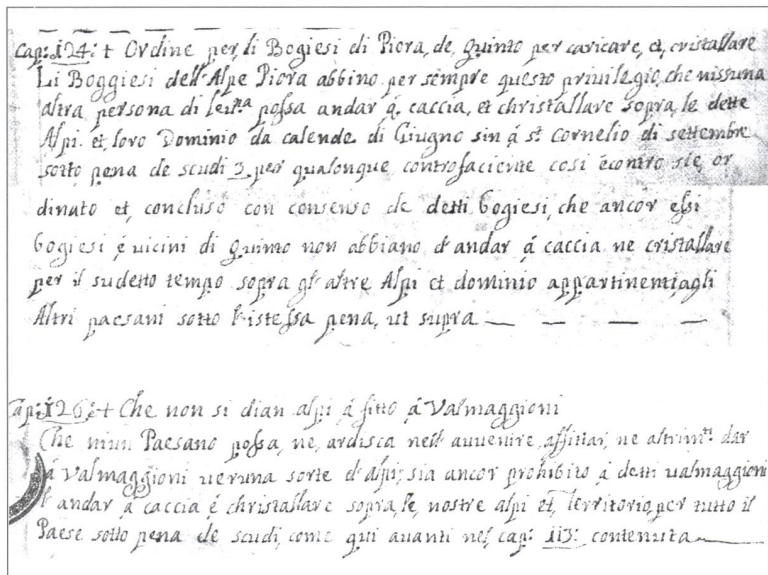 Cap: 124: + Ordine per li Bogiesi di Piora, de Quinto per caricare, et, cristallare
Li Boggiesi dell'Alpe Piora abbino per sempre questo privilegio, che nissuna
altra persona di possa andar à caccia, et christallare sopra, le dette
Alpi et, loro Dominio da calende di Giugno sin à st Cornelio di settembre
sotto pena de scudi 3 per qualonque controfaciente cosi écontro sie, or
dinato et, concluso con consenso de detti bogiesi, che ancor essi
bogiesi é vicini di Quinto non abbiano d'andar á caccia ne cristallare
per il sudetto tempo sopra gl'altre Alpi et dominio appartinenti agli
Altri paesani sotto l'istessa pena, ut supra — — — —
Cap: 126: + Che non si dian alpi á fitto á Valmaggioni
Che niun Paesano possa, ne, ardisca nell' avvenire, affittar, ne altrimti dar
á Valmaggioni veruna sorte d'alpi; sia ancor prohibito á detti valmaggioni
l'andar á caccia é christallare sopra, le, nostre alpi et, Territorio, per tutto il
Paese sotto pena de scudi, come qui avanti nel, cap: 113: contenuta —